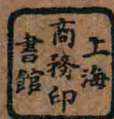 上海
商務印
書館